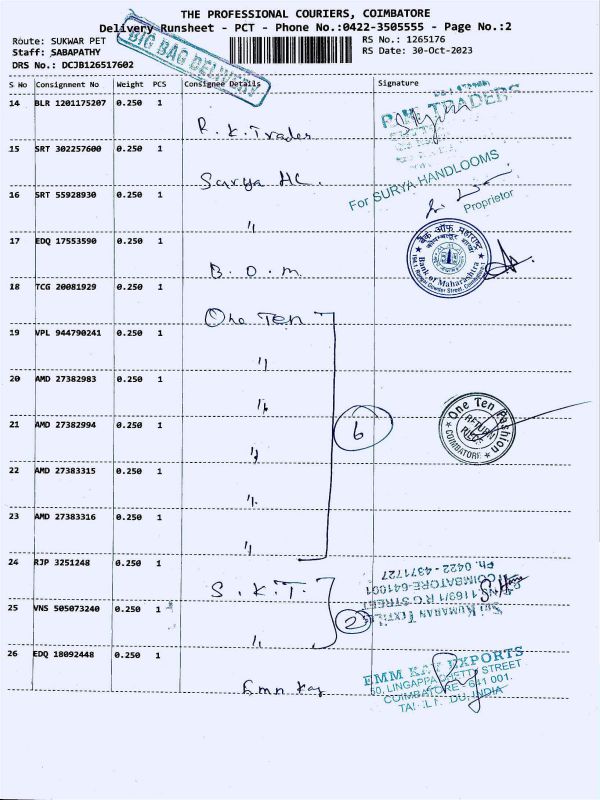 THE PROFESSIONAL COURIERS, COIMBATORE
Delivery Runsheet - PCT - Phone No.:0422-3505555 - Page No.:2
Route: SUKWAR PET
Staff: SABAPATHY
DRS No.: DCJB126517602
BIG BAG DELIVERY
RS No.: 1265176
RS Date: 30-Oct-2023
S No Consignment No Weight PCS Consignee Details Signature
14 BLR 1201175207 0.250 1
R. K. Trades
TRADERS
15 SRT 302257600 0.250 1
Surya HL.
For SURYA HANDLOOMS
Proprietor
16 SRT 55928930 0.250 1
"
17 EDQ 17553590 0.250 1
B. O. M.
बैंक ऑफ महाराष्ट्र
Bank of Maharashtra
18 TCG 20081929 0.250 1
One Ten
19 VPL 944790241 0.250 1
"
20 AMD 27382983 0.250 1
"
21 AMD 27382994 0.250 1
"
6
One Ten Fashion
COIMBATORE
RETURN
22 AMD 27383315 0.250 1
"
23 AMD 27383316 0.250 1
"
24 RJP 3251248 0.250 1
S. K. T.
SRI KUMARAN TEXTILES
1169/1 R G STREET
COIMBATORE-641001
Ph. 0422 - 4371727
25 VNS 505073240 0.250 1
"
2
26 EDQ 18092448 0.250 1
Emm Kay
EMM KAY EXPORTS
50, LINGAPPA CHETTY STREET
COIMBATORE - 641 001.
TAMIL NADU, INDIA